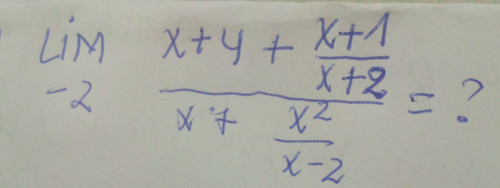 Lim x+4 + x+1
-2 x+2 = ?
x 7 x²
x-2